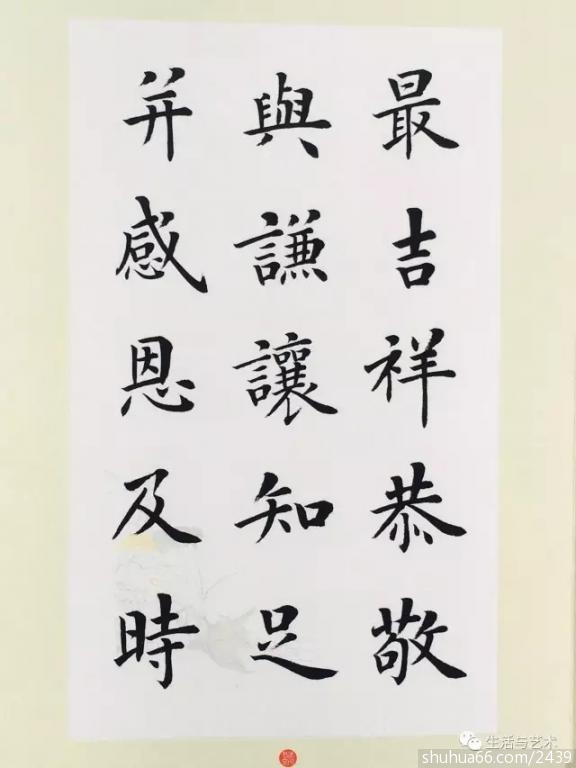 最吉祥恭敬
與謙讓知足
并感恩及時
生活与艺术
shuhua66.com/2439